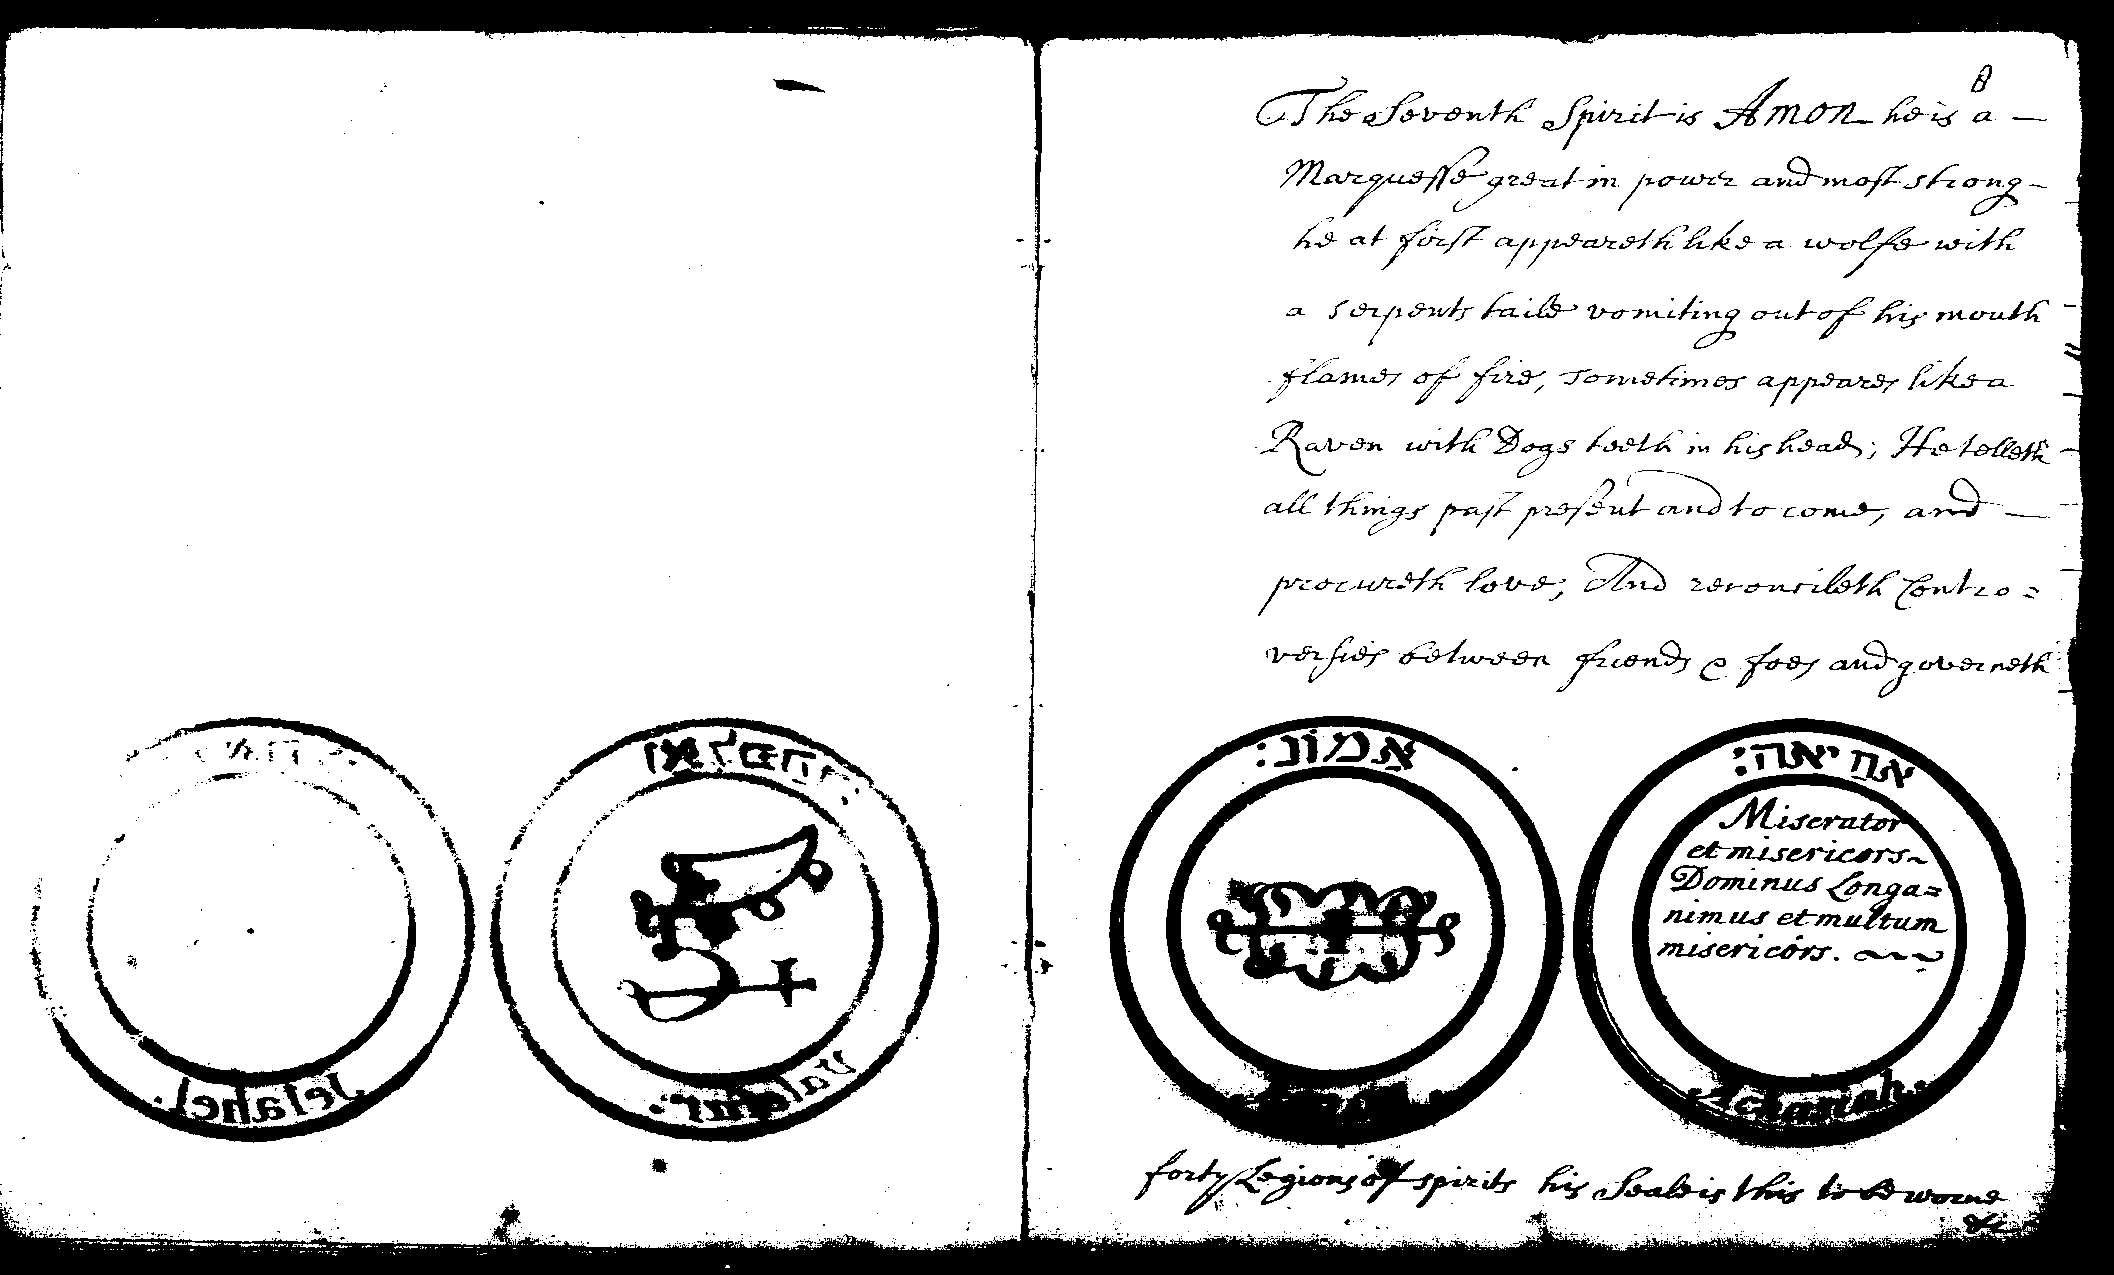 8
The Seventh Spirit is Amon he is a —
Marquesse great in power and most strong -
he at first appeareth like a wolfe with
a serpents taile vomiting out of his mouth
flames of fire, sometimes appeares like a
Raven with Dogs teeth in his head; He telleth
all things past present and to come, and —
procureth love; And reconcileth Contro=
versies between friends & foes and governeth
אמון:
אחיאה:
Miserator
et misericors~
Dominus Longa=
nimus et multum
misericors.
Achasiah.
Jelahel.
forty Legions of spirits his Seale is this to be worne
&c